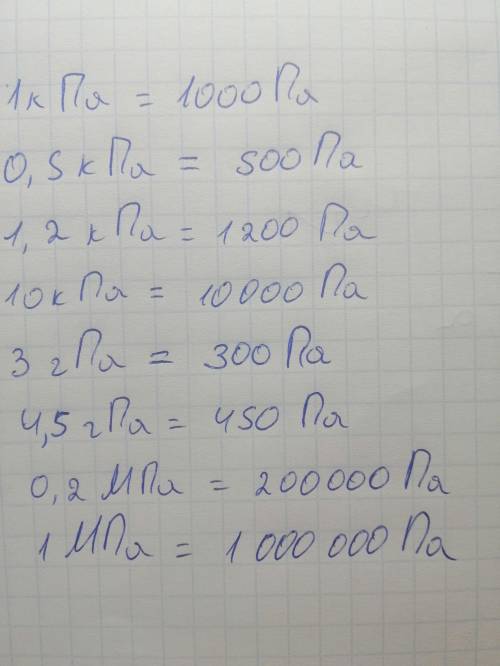 1кПа = 1000Па
0,5кПа = 500Па
1,2кПа = 1200 Па
10кПа = 10000 Па
3 гПа = 300Па
4,5гПа = 450 Па
0,2 МПа = 200000 Па
1 МПа = 1 000 000 Па